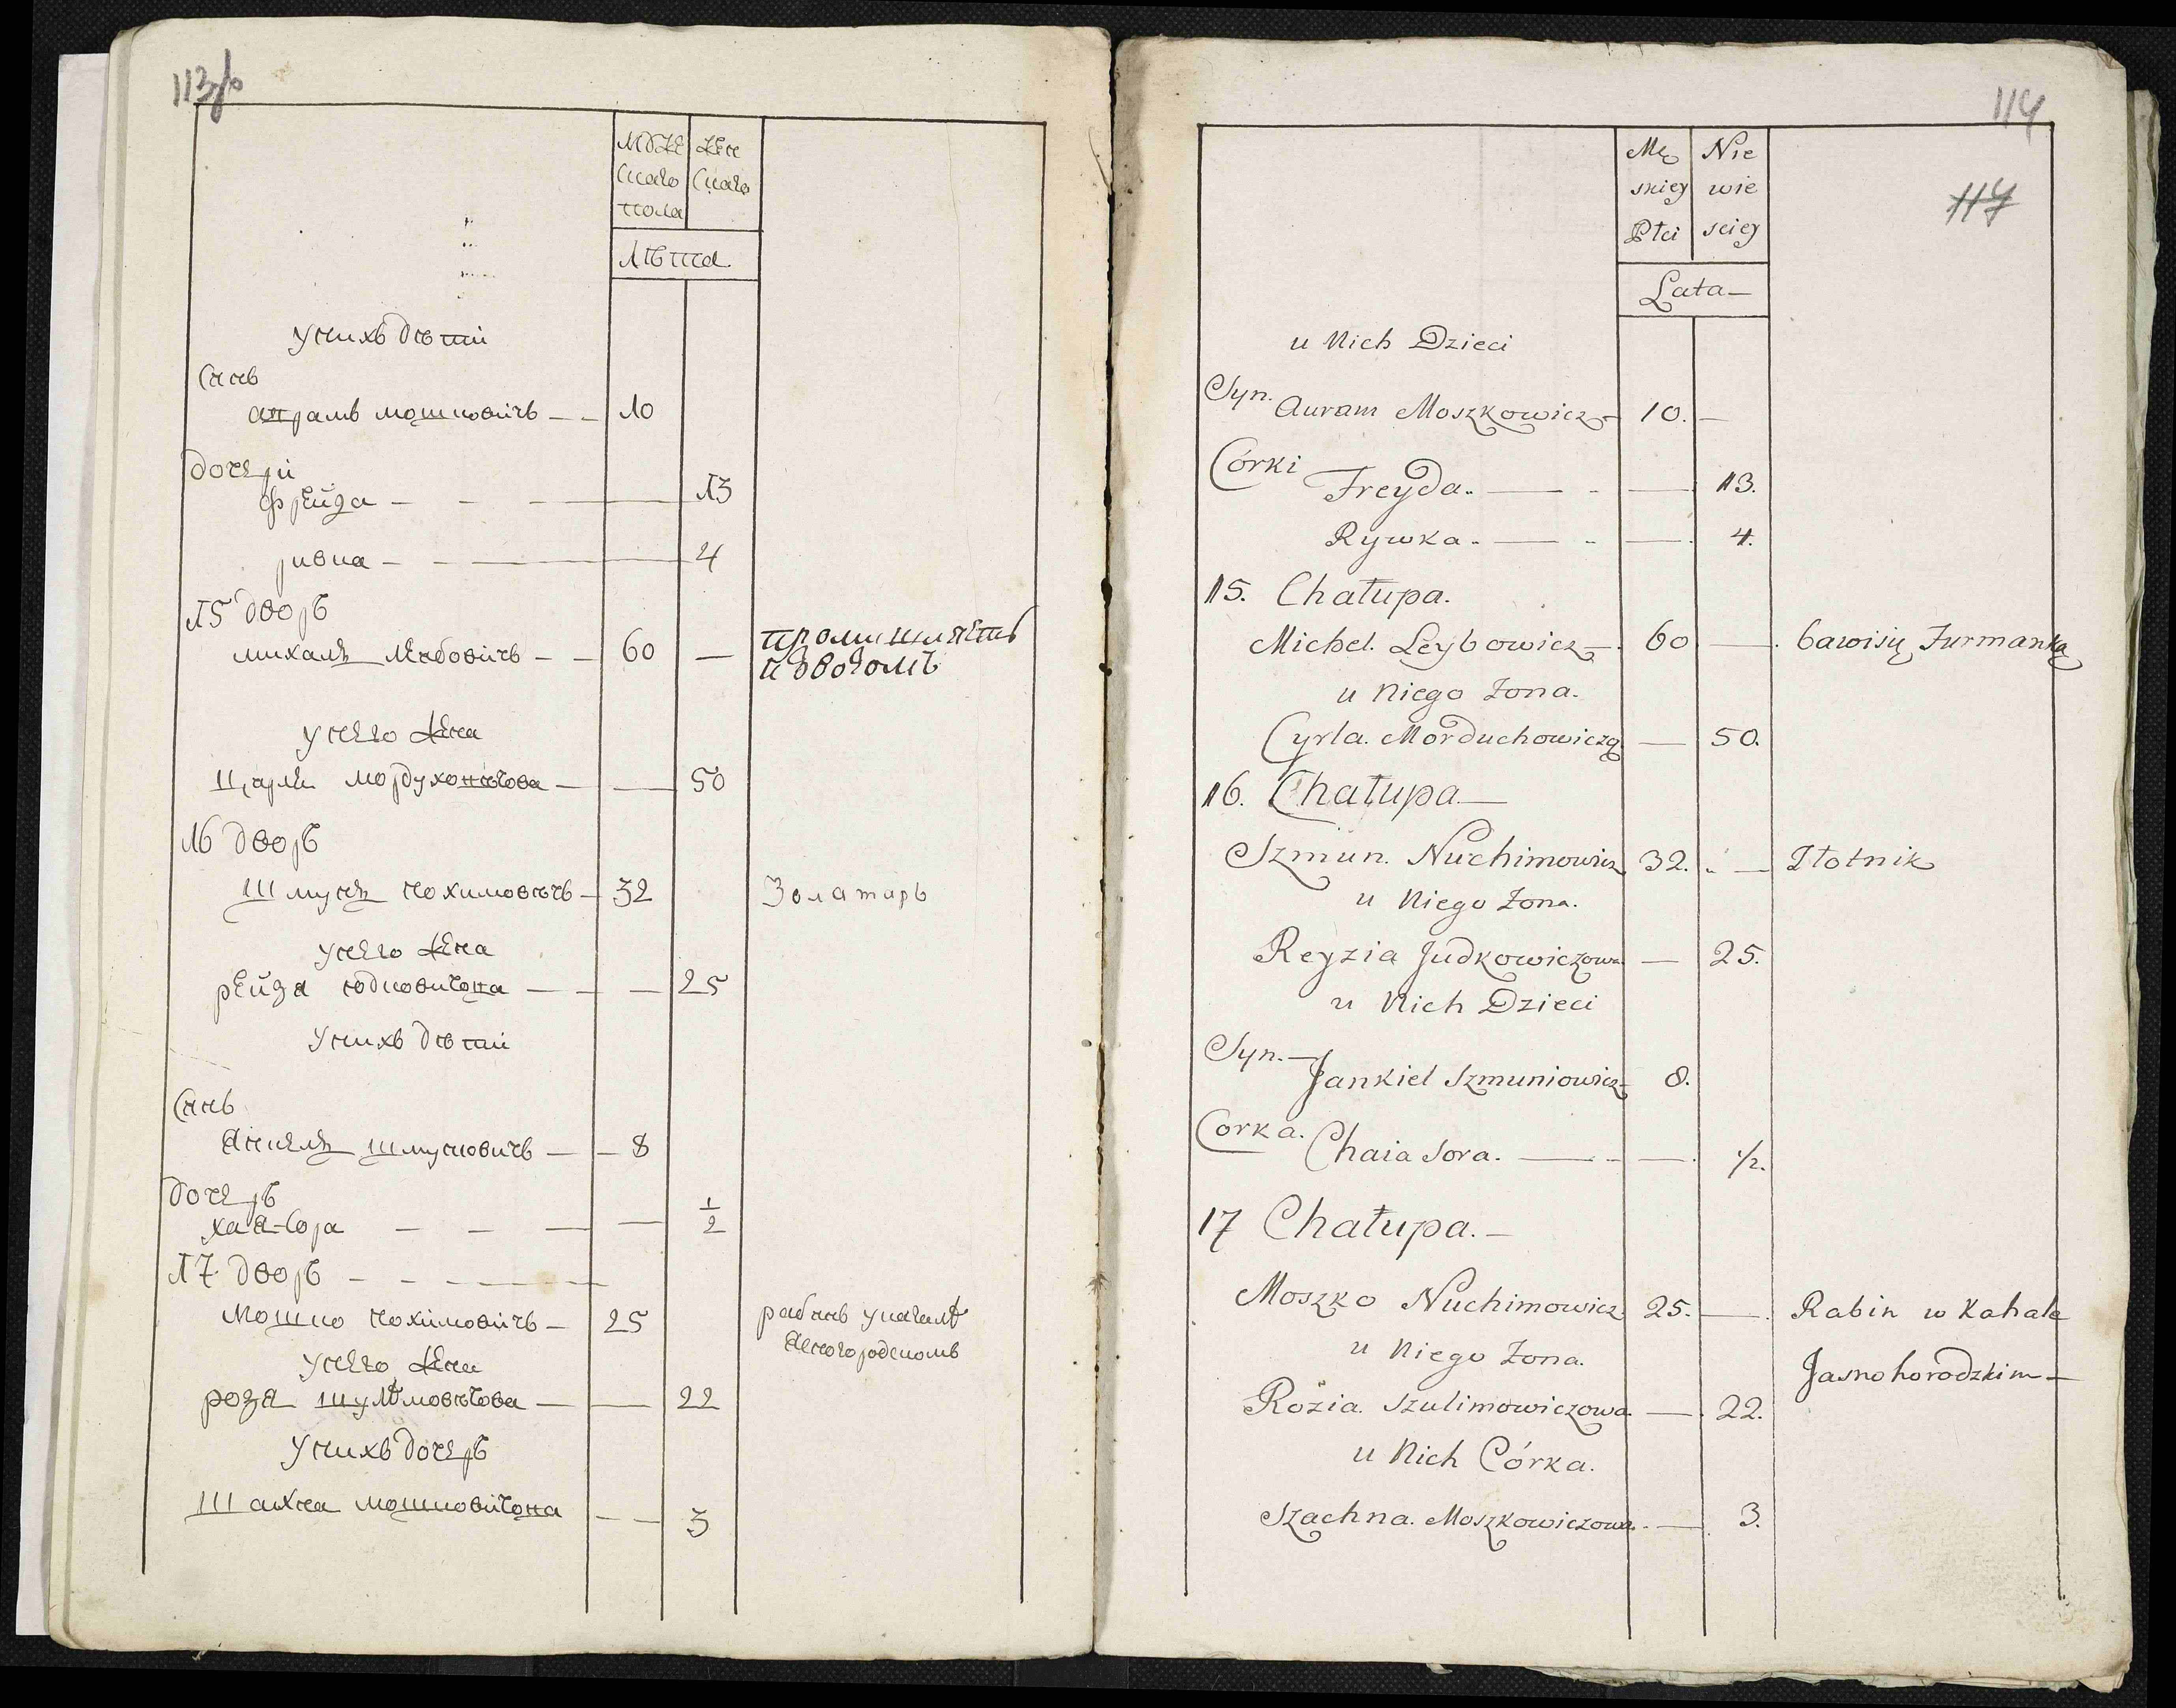 113об
муже
скаго
пола
жен
скаго
лѣта
у нихъ дѣти
Сынъ
аврамъ мошковичъ — — 10
дочери
фрейда — — — 13
ривка — — — 4
15 дворъ
михаль лейбовичъ — — 60 — промишляетъ
извозомъ
у него жена
цирля мордуховичова — — 50
16 дворъ
шмунь нохимовичъ — 32 Золатарь
у него жена
рейзя юдковичова — — — 25
у нихъ дѣти
Сынъ
янкель шмуновичъ — — 8
дочерь
хая-сора — — — — 1/2
17 дворъ — — — —
мошко нохимовичъ — 25 рабинъ у кагалѣ
ясногородскомъ
у него жена
розя шулимовичова — — 22
у нихъ дочерь
шахна мошковичова — — 3
114
114
Mę
skiey
Płci
Nie
wie
sciey
Lata —
u Nich Dzieci
Syn. Auram Moszkowicz — 10. —
Córki Freyda. — — 13.
Rywka. — — 4.
15. Chałupa.
Michel. Leybowicz — 60 — bawisię Furmanką
u Niego Żona.
Cyrla. Morduchowiczo. — 50.
16. Chałupa —
Szmun. Nuchimowicz 32. — Złotnik
u Niego Żona.
Reyzia Judkowiczowa — 25.
u Nich Dzieci
Syn. — Jankiel Szmuniowicz — 8.
Corka. Chaia Sora. — — 1/2.
17 Chałupa. —
Moszko Nuchimowicz 25. — Rabin w Kahale
u Niego Żona.
Jasnohorodzkim —
Rozia. Szulimowiczowa. — 22.
u Nich Córka.
Szachna. Moszkowiczowa. — 3.